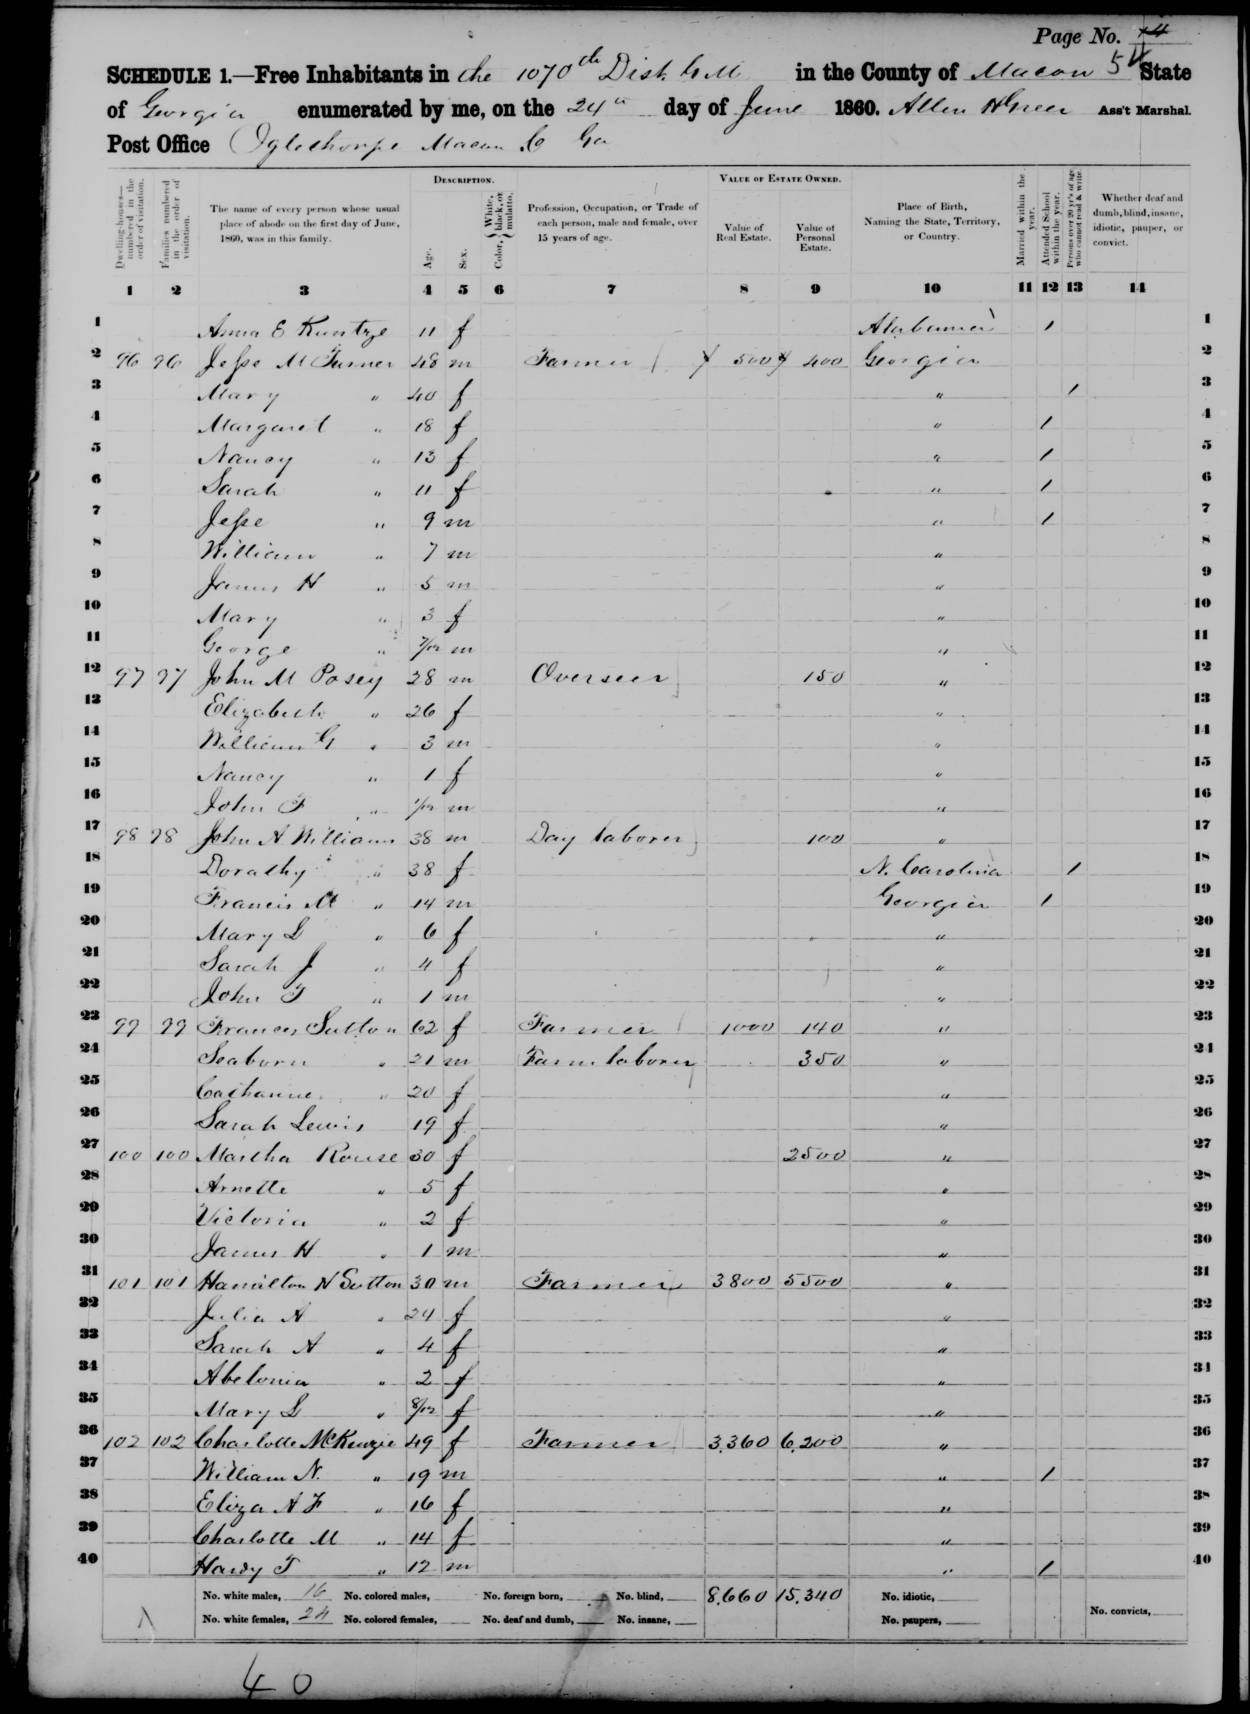 Page No. 14
54
SCHEDULE 1.—Free Inhabitants in the 1070th Dist G M in the County of Macon State
of Georgia enumerated by me, on the 24th day of June 1860. Allen H Greer Ass't Marshal.
Post Office Oglethorpe Macon Co Ga
DESCRIPTION. VALUE OF ESTATE OWNED.
Dwelling-houses—numbered in the order of visitation. Families numbered in the order of visitation. The name of every person whose usual place of abode on the first day of June, 1860, was in this family. Age. Sex. Color, { White, black, or mulatto. Profession, Occupation, or Trade of each person, male and female, over 15 years of age. Value of Real Estate. Value of Personal Estate. Place of Birth, Naming the State, Territory, or Country. Married within the year. Attended School within the year. Persons over 20 yr's of age who cannot read & write. Whether deaf and dumb, blind, insane, idiotic, pauper, or convict.
1 2 3 4 5 6 7 8 9 10 11 12 13 14
1 Anna E Kuntze 11 f Alabama / 1
2 96 96 Jesse M Turner 48 m Farmer 500 400 Georgia 2
3 Mary " 40 f " / 3
4 Margaret " 18 f " / 4
5 Nancy " 13 f " / 5
6 Sarah " 11 f " / 6
7 Jesse " 9 m " / 7
8 William " 7 m " 8
9 James H " 5 m " 9
10 Mary " 3 f " 10
11 George " 7/12 m " 11
12 97 97 John M Posey 28 m Overseer 150 " 12
13 Elizabeth " 26 f " 13
14 William G " 3 m " 14
15 Nancy " 1 f " 15
16 John F " 1/12 m " 16
17 98 98 John A Williams 38 m Day laborer 100 " 17
18 Dorathy " 38 f N. Carolina / 18
19 Francis M " 14 m Georgia / 19
20 Mary L " 6 f " 20
21 Sarah J " 4 f " 21
22 John T " 1 m " 22
23 99 99 Frances Sutton 62 f Farmer 1000 140 " 23
24 Seaborn " 21 m Farm laborer 350 " 24
25 Catharine " 20 f " 25
26 Sarah Lewis 19 f " 26
27 100 100 Martha Rouse 30 f 2500 " 27
28 Arnette " 5 f " 28
29 Victoria " 2 f " 29
30 James H " 1 m " 30
31 101 101 Hamilton N Sutton 30 m Farmer 3800 5500 " 31
32 Julia A " 24 f " 32
33 Sarah A " 4 f " 33
34 Abelonia " 2 f " 34
35 Mary L " 8/12 f " 35
36 102 102 Charlotte McKenzie 49 f Farmer 3,360 6,200 " 36
37 William N. " 19 m " / 37
38 Eliza A F " 16 f " 38
39 Charlotte M " 14 f " 39
40 Hardy T " 12 m " / 40
No. white males, 16 No. colored males, No. foreign born, No. blind, 8,660 15,340 No. idiotic,
No. white females, 24 No. colored females, No. deaf and dumb, No. insane, No. paupers, No. convicts,
40